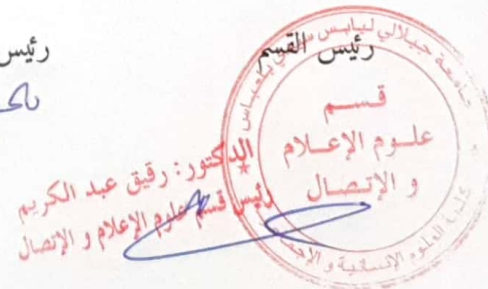 رئيس القسم
رئيس
جامعة جيلالي ليابس سيدي بلعباس
قسم
علوم الإعلام
و الإتصال
كلية العلوم الإنسانية و الإجت
الدكتور: رقيق عبد الكريم
رئيس قسم علوم الإعلام و الإتصال